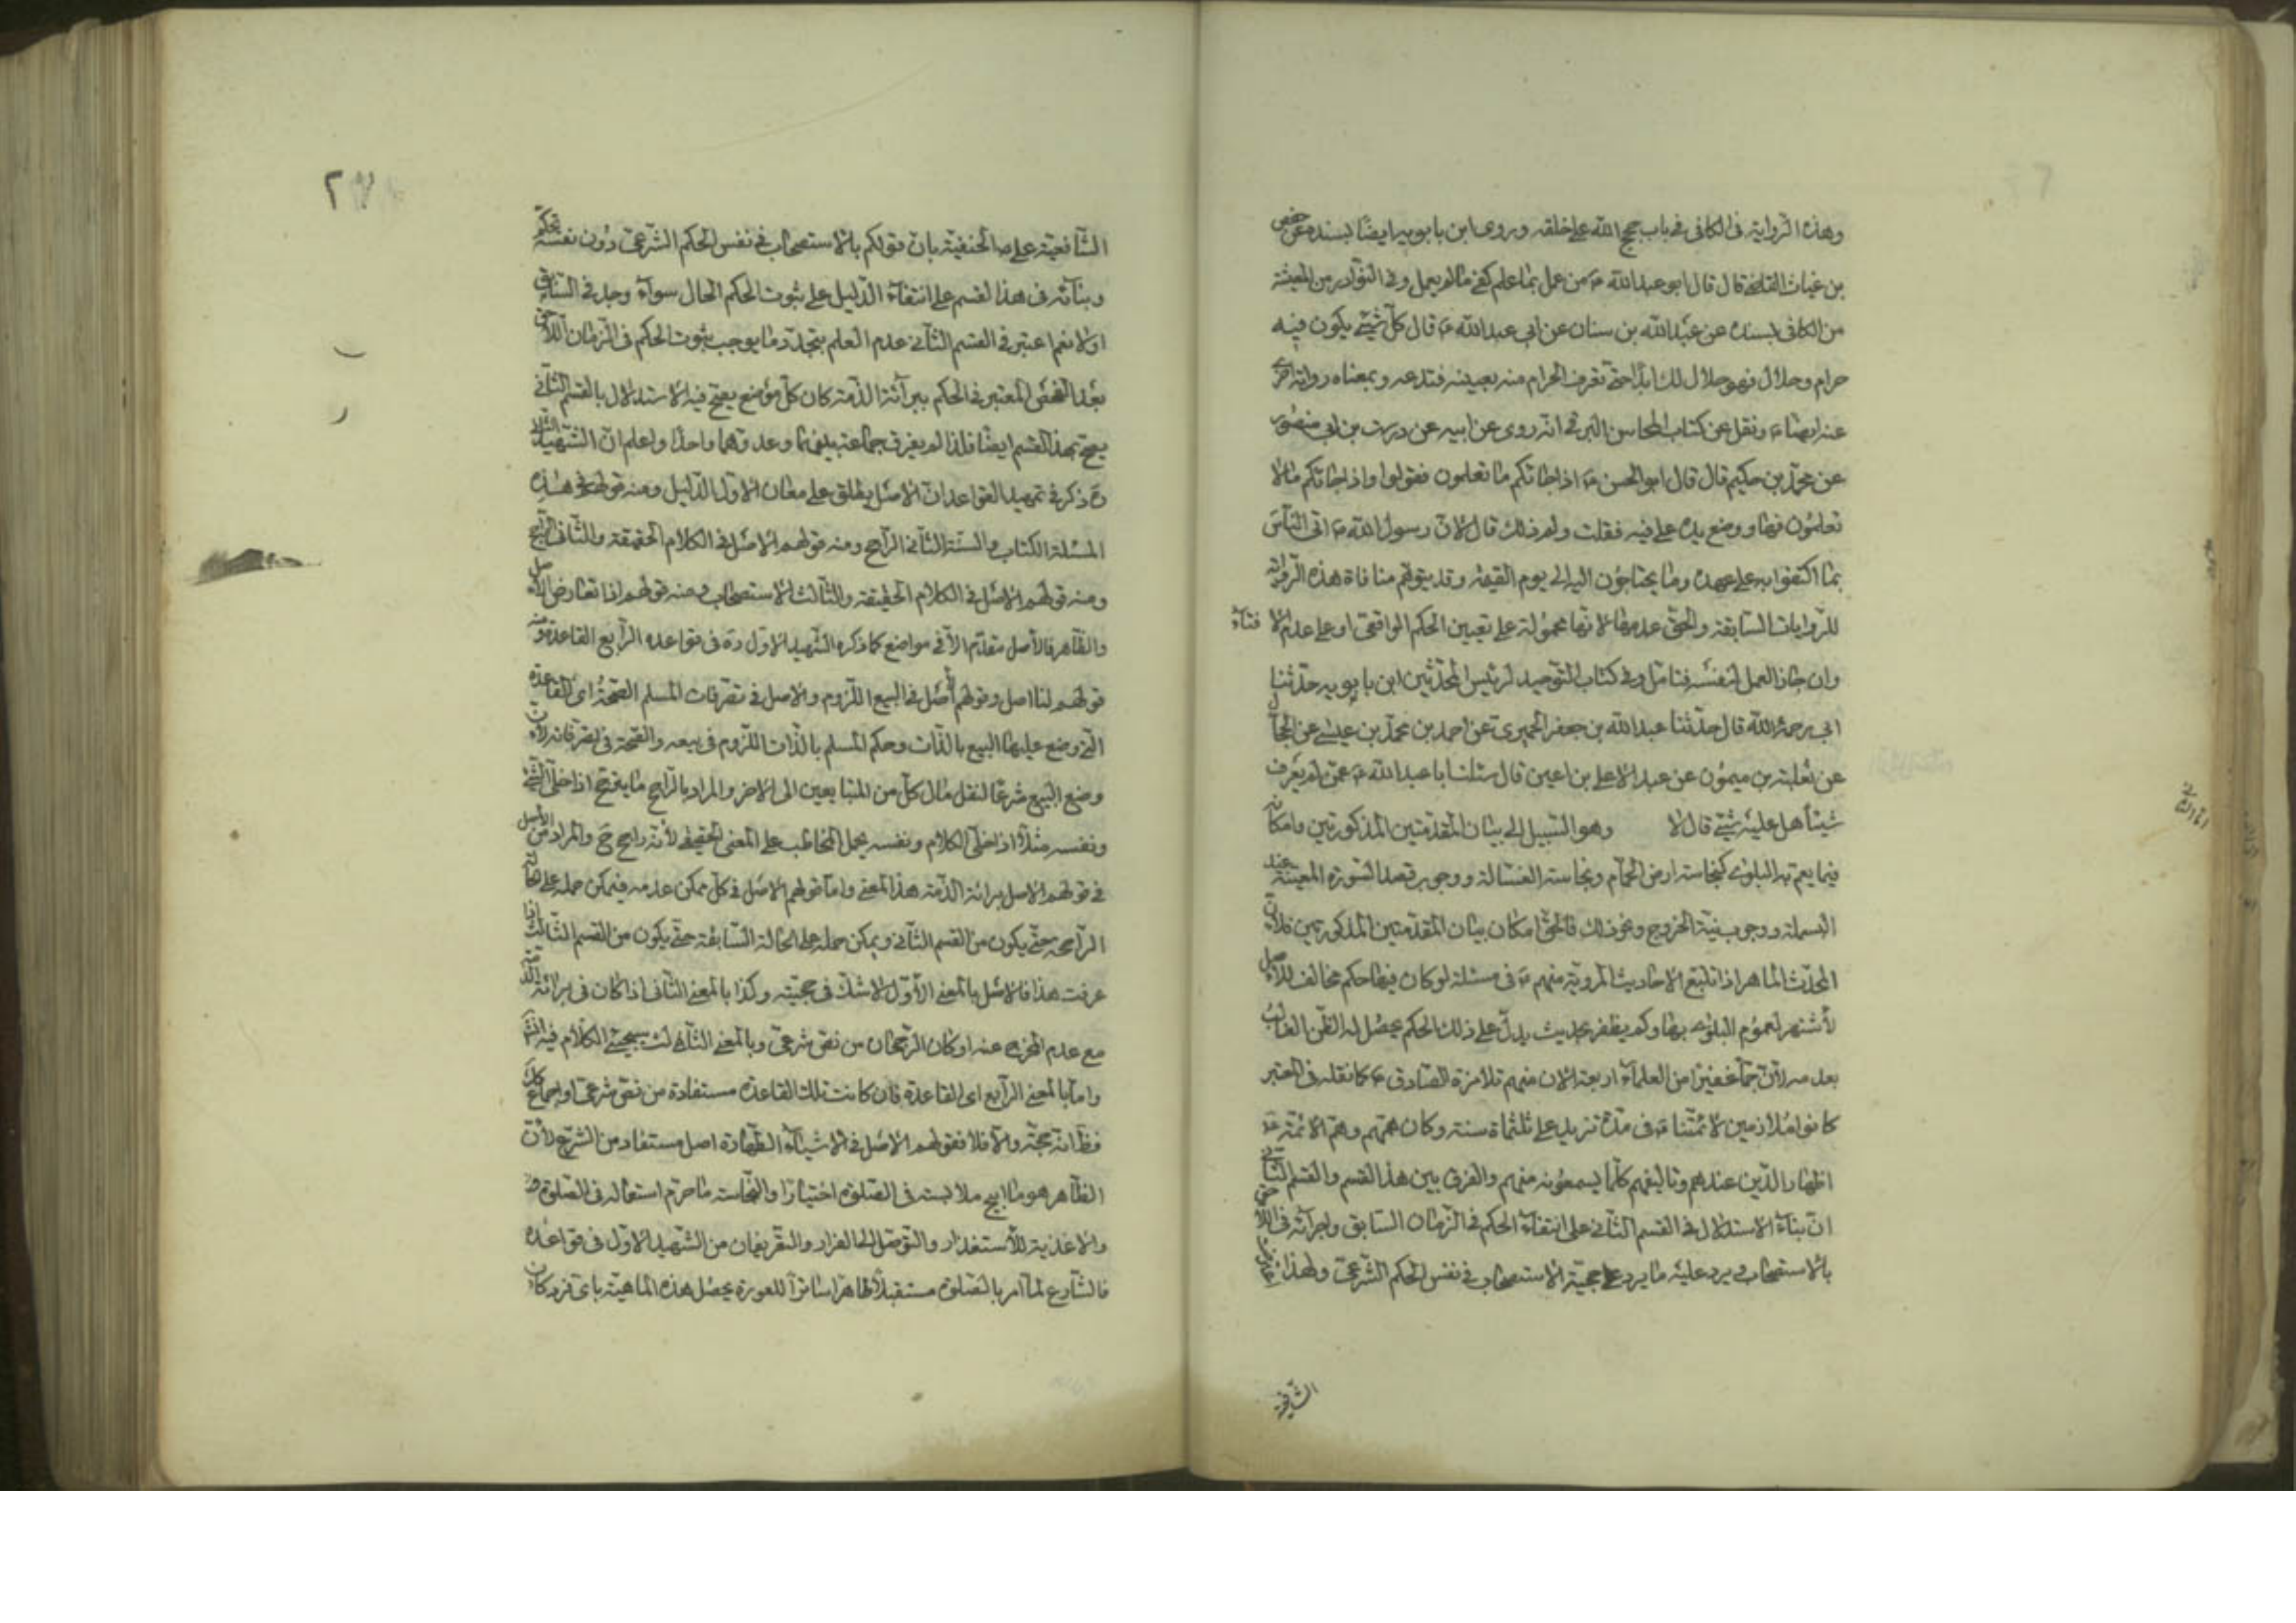 وهذه الرواية فى الكافى فى باب حجج الله على خلقه وروى ابن بابويه ايضا بسنده عن حفص
بن غياث القاضى قال قال ابو عبد الله ع من عمل بما علم كفى ما لم يعمل وفى النوادر من المعيشة
من الكافى بسنده عن عبد الله بن سنان عن ابى عبد الله ع قال كل شىء يكون فيه
حرام وحلال فهو حلال لك ابدا حتى تعرف الحرام منه بعينه فتدعه وبمعناه رواية اخرى
عنه ايضا ع ونقل عن كتاب المحاسن البرقى انه روى عن ابيه عن درست بن ابى منصور
عن محمد بن حكيم قال قال ابو الحسن ع اذا جائكم ما تعلمون فقولوا واذا جائكم ما لا
تعلمون فها ووضع يده على فيه فقلت ولم ذلك قال لان رسول الله ص اتى الناس
بما اكتفوا به على عهده وما يحتاجون اليه الى يوم القيمة وقد يتوهم منافاة هذه الرواية
للروايات السابقة والحق عدمها لانها محمولة على تعيين الحكم الواقعى او على عدم الافتاء
وان جاز العمل لنفسه فتامل وفى كتاب التوحيد لرئيس المحدثين ابن بابويه حدثنا
ابى رحمه الله قال حدثنا عبد الله بن جعفر الحميرى عن احمد بن محمد بن عيسى عن الحجال
عن ثعلبة بن ميمون عن عبد الاعلى بن اعين قال سئلت ابا عبد الله ع عمن لم يعرف
شيئا هل عليه شىء قال لا وهو السبيل الى بيان المقدمتين المذكورتين وامكانه
فيما يعم به البلوى كنجاسة ارض الحمام ونجاسة الغسالة ووجوب قصد السورة المعينة عند
البسملة ووجوب نية الخروج ونحو ذلك فالحق امكان بيان المقدمتين المذكورتين فلان
المحدث الماهر اذا تتبع الاحاديث المروية عنهم ع فى مسئلة لو كان فيها حكم مخالف للاصل
لاشتهر لعموم البلوى بها ولم يظفر بحديث يدل على ذلك الحكم يحصل له الظن الغالب
بعدمه لان جما غفيرا من العلماء اربعة الاف منهم تلامذة الصادق ع كما نقله فى المعتبر
كانوا ملازمين لائمتنا ع فى مدة تزيد على ثلثماة سنة وكان همهم وهم الائمة ع
اظهار الدين عندهم وتاليفهم كلما يسمعونه منهم والفرق بين هذا القسم والقسم الثانى
ان بناء الاستدلال فى القسم الثانى على انتفاء الحكم فى الزمان السابق واجرائه فى اللاحق
بالاستصحاب فيرد عليه ما يرد على حجية الاستصحاب فى نفس الحكم الشرعى ولهذا
الشافعية
الشافعية على الحنفية بان قولكم بالاستصحاب فى نفس الحكم الشرعى دون نفسه تحكم
وبنائه فى هذا القسم على انتفاء الدليل على ثبوت الحكم الحال سواء وجد فى السابق
اولا نعم اعتبر فى القسم الثانى عدم العلم بتجدد ما يوجب ثبوت الحكم فى الزمان اللاحق
بعد الفحص المعتبر فى الحكم ببرائة الذمة كان كل موضع يصح فيه الاستدلال بالقسم الثانى
يصح بهذا القسم ايضا فلذا لم يفرق جماعة بينهما وعدوهما واحدا واعلم ان الشهيد الثانى
ره ذكر فى تمهيد القواعد ان الاصل يطلق على معان الاول الدليل ومنه قولهم فى هذه
المسئلة الكتاب والسنة الثانى الراجح ومنه قولهم الاصل فى الكلام الحقيقة والثانى الراجح
ومنه قولهم الاصل فى الكلام الحقيقة والثالث الاستصحاب ومنه قولهم اذا تعارض الاصل
والظاهر فالاصل مقدم الا فى مواضع كما ذكره الشهيد الاول ره فى قواعده الرابع القاعدة ومنه
قولهم لنا اصل وقولهم الاصل فى البيع اللزوم والاصل فى تصرفات المسلم الصحة اى القاعدة
التى وضع عليها البيع بالذات وحكم المسلم بالذات اللزوم فى بيعه والصحة فى تصرفاته لان
وضع البيع شرعا لنقل مال كل من المتبايعين الى الاخر والمراد بالراجح ما يترجح اذا خلى الشىء
ونفسه مثلا اذا خلى الكلام ونفسه يحمل المخاطب على المعنى الحقيقى لانه راجح ح والمراد من الاصل
فى قولهم الاصل برائة الذمة هذا المعنى واما قولهم الاصل فى كل ممكن عدمه فيمكن حمله على الحالة
الراجحه حتى يكون من القسم الثانى ويمكن حمله على الحالة السابقة حتى يكون من القسم الثالث اذا
عرفت هذا فالاصل بالمعنى الاول لا شك فى حجيته وكذا بالمعنى الثانى اذا كان فى برائة الذمة
مع عدم المخرج عنه او كان الرجحان من نص شرعى وبالمعنى الثالث سيجىء الكلام فيه انشاء
واما بالمعنى الرابع اى القاعدة فان كانت تلك القاعدة مستفادة من نص شرعى او اجماع كك
فظ انه حجة والا فلا فقولهم الاصل فى الاشياء الطهارة اصل مستفاد من الشرع لان
الظاهر هو ما ابيح ملابسته فى الصلوة اختيارا والنجاسة ما حرم استعماله فى الصلوة و
والاغذية للاستقذار والتوصل الى الفرار والتعريفان من الشهيد الاول فى قواعده
فالشارع لما امر بالصلوة مستقبلا طاهرا ساترا للعورة يحصل هذه الماهية باى فرد كان